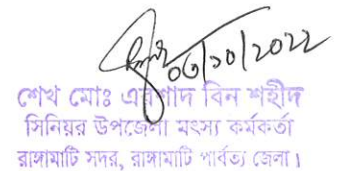 ০৬/১০/২০২২
শেখ মোঃ এরশাদ বিন শহীদ
সিনিয়র উপজেলা মৎস্য কর্মকর্তা
রাঙ্গামাটি সদর, রাঙ্গামাটি পার্বত্য জেলা।